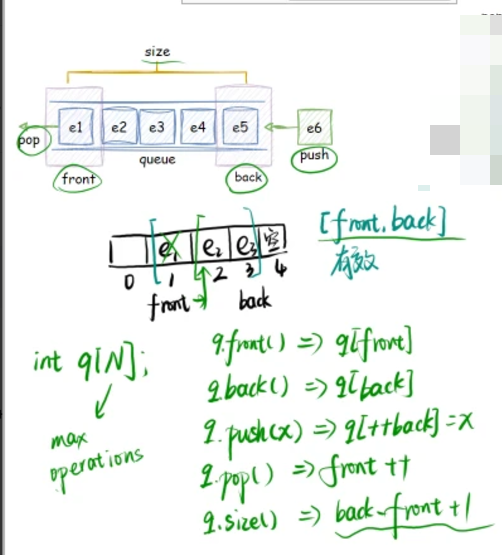 size
e1 e2 e3 e4 e5 e6
pop
queue
push
front
back
e1 e2 e3 空
0 1 2 3 4
front back
[front, back]
有效
int q[N];
max
operations
q.front() => q[front]
q.back() => q[back]
q.push(x) => q[++back]=x
q.pop() => front ++
q.size() => back-front+1